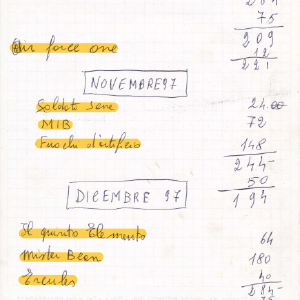 75
Air force one 209
12
221
NOVEMBRE 97
Soldato Jane 24.00
MIB 72
Fuochi d'artificio 148
244
50
DICEMBRE 97 194
Il quinto Elemento 64
Mister Bean 180
Ercules 40
284